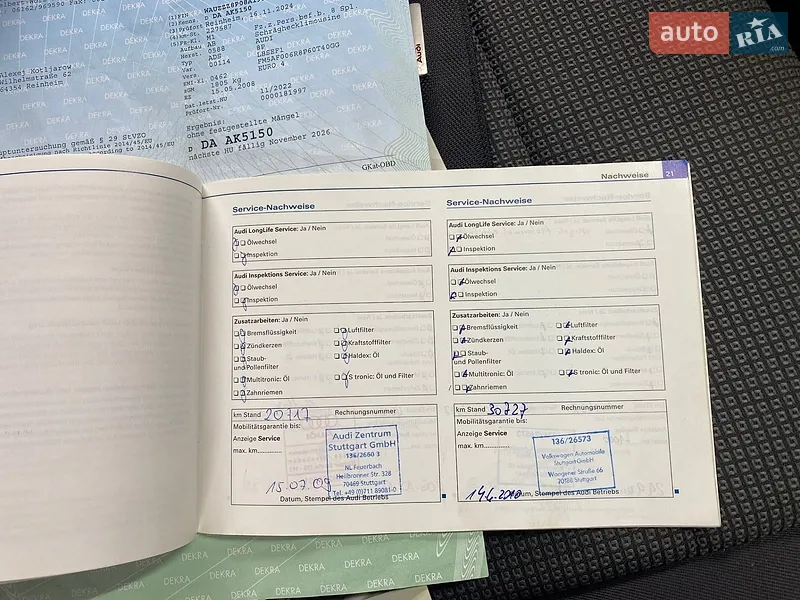 auto RIA .com
Audi
WAUZZZ8P08A
DA AK5150
Reinheim, 16.11.2024
227587
M1
Fz.z.Pers.bef.b. 8 Spl.
AB
Schräghecklimousine
0588
AUDI
ADS
8P
00114
LBSEF1
FM5AF006R8P60T40GG
EURO 4
0462
1805 kg
15.05.2008
Dat.letzt.HU 11/2022
Prüfort-Nr. 0000181997
Alexej Kotljarow
Wilhelmstraße 62
64354 Reinheim
Ergebnis:
ohne festgestellte Mängel
DA AK5150
nächste HU fällig November 2026
GKat-OBD
Nachweise 21
Service-Nachweise
Audi LongLife Service: Ja / Nein
Ölwechsel
Inspektion
Audi Inspektions Service: Ja / Nein
Ölwechsel
Inspektion
Zusatzarbeiten: Ja / Nein
Bremsflüssigkeit Luftfilter
Zündkerzen Kraftstofffilter
Staub- Haldex: Öl
und Pollenfilter
Multitronic: Öl S tronic: Öl und Filter
Zahnriemen
km Stand 20717 Rechnungsnummer
Mobilitätsgarantie bis:
Anzeige Service
max. km
Audi Zentrum
Stuttgart GmbH
136/2660 3
NL Feuerbach
Heilbronner Str. 328
70469 Stuttgart
Tel. +49 (0)711 89081-0
15.07.09
Datum, Stempel des Audi Betriebs
Service-Nachweise
Audi LongLife Service: Ja / Nein
Ölwechsel
Inspektion
Audi Inspektions Service: Ja / Nein
Ölwechsel
Inspektion
Zusatzarbeiten: Ja / Nein
Bremsflüssigkeit Luftfilter
Zündkerzen Kraftstofffilter
Staub- Haldex: Öl
und Pollenfilter
Multitronic: Öl S tronic: Öl und Filter
Zahnriemen
km Stand 30727 Rechnungsnummer
Mobilitätsgarantie bis:
Anzeige Service
max. km
136/26573
Volkswagen Automobile
Stuttgart GmbH
Wangener Straße 66
70188 Stuttgart
Datum, Stempel des Audi Betriebs
DEKRA DEKRA DEKRA DEKRA